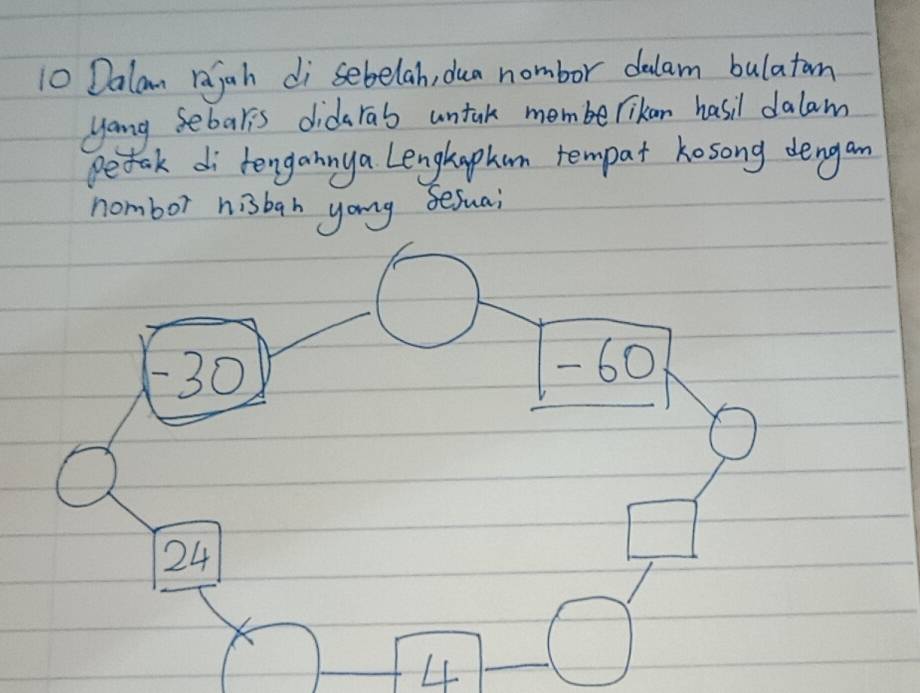 10 Dalam rajah di sebelah, dua nombor dalam bulatan
yang sebaris didarab untuk memberikan hasil dalam
petak di tengahnya. Lengkapkan tempat kosong dengan
nombor nisbah yang sesuai
-30
-60
24
4